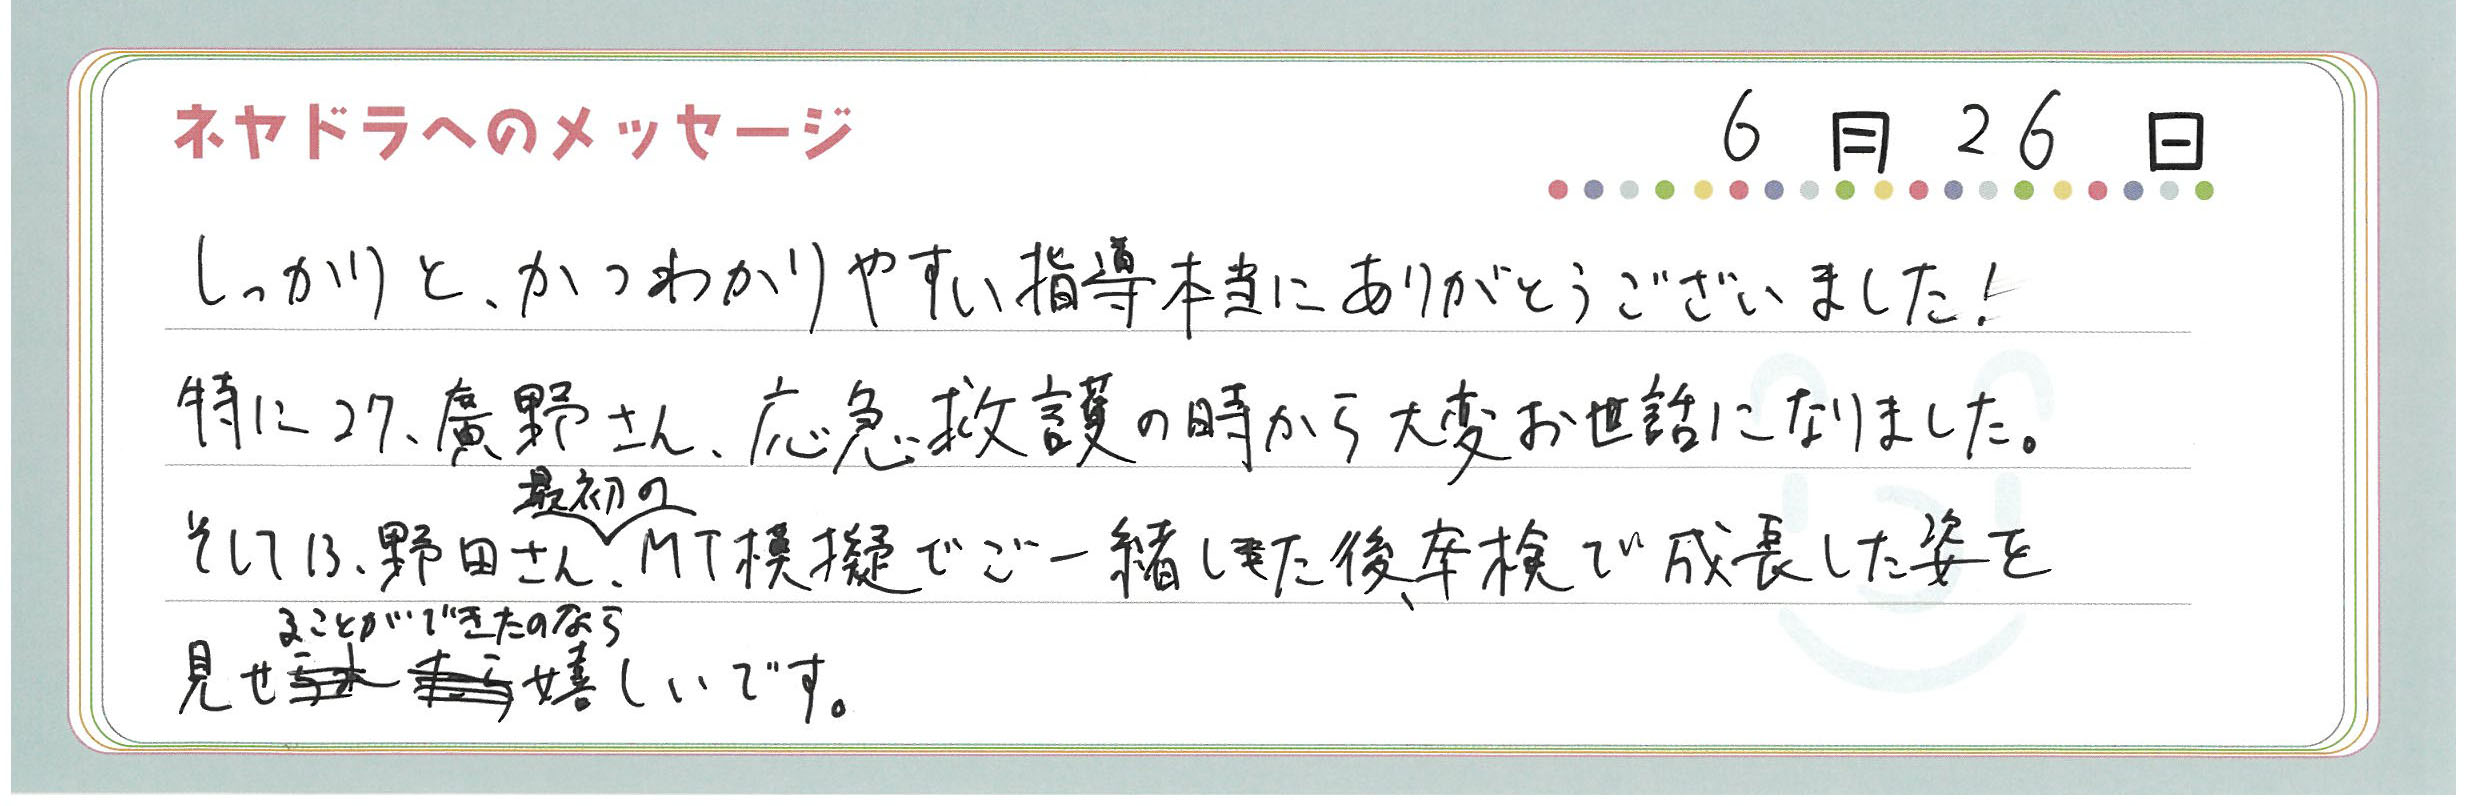 ネヤドラへのメッセージ
6月26日
しっかりと、かつわかりやすい指導本当にありがとうございました!
特に27、廣野さん、応急救護の時から大変お世話になりました。
最初の
そして13、野田さん、MT模擬でご一緒した後、卒検で成長した姿を
ることができたのなら
見せ嬉しいです。